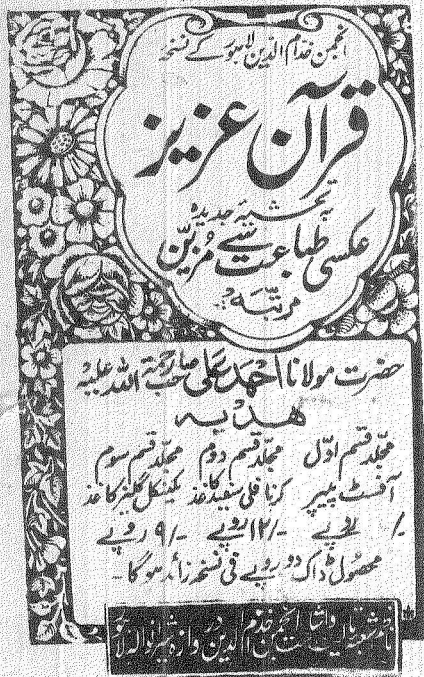 انجمن خدام الدین لاہور کے نسخہ
قرآن عزیز
بحشیۂ جدیدہ
عکسی طباعت سے مزیّن
مرتّبہ
حضرت مولانا احمد علی صاحب رحمۃ اللہ علیہ
ھدیہ
مجلّد قسم اوّل مجلّد قسم دوم مجلّد قسم سوم
آفسٹ پیپر کرنافلی سفید کاغذ مکینکل گلیز کاغذ
روپے ۱۲/- روپے ۹/- روپے
محصول ڈاک دو روپے فی نسخہ زائد ہوگا۔
ناظم شعبہ واشاعت انجمن خدام الدین دروازہ شیرانوالہ لاہور